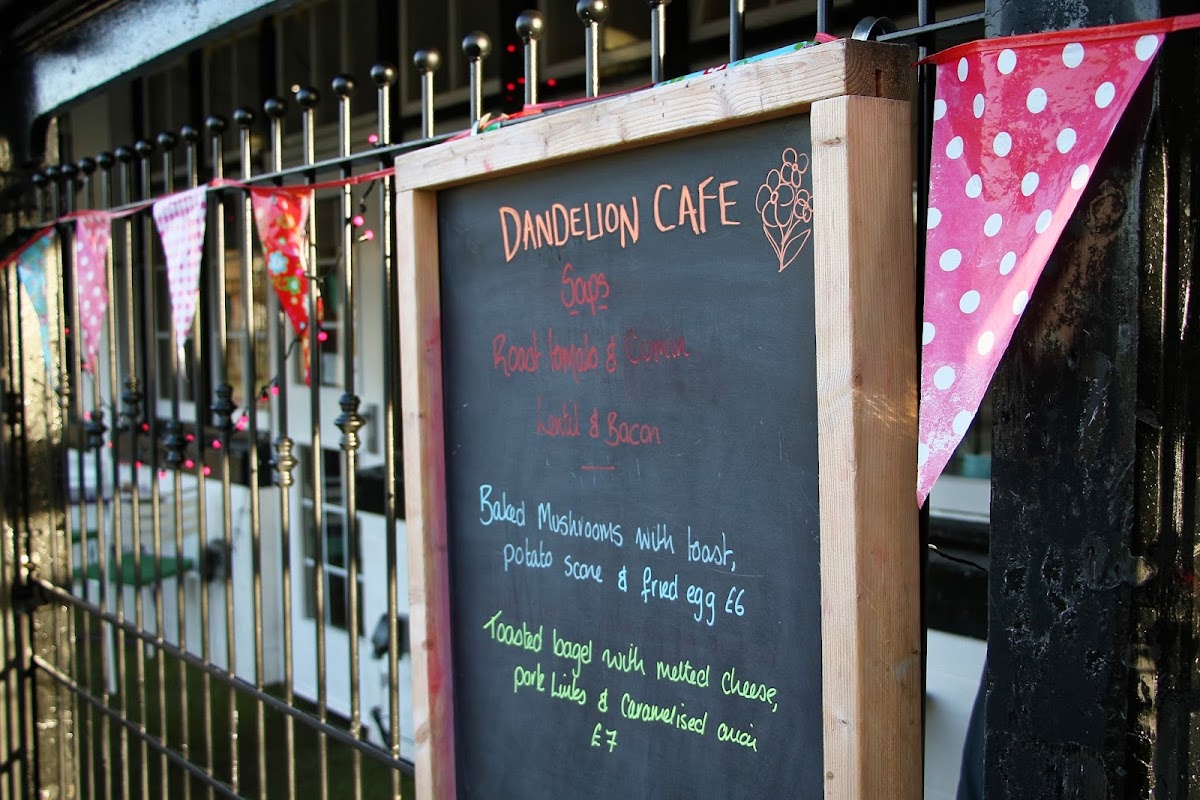 DANDELION CAFE
Soups
Roast tomato & Cumin
Lentil & Bacon
Baked Mushrooms with toast,
potato scone & fried egg £6
Toasted bagel with melted cheese,
pork Links & Caramelised onion
£7